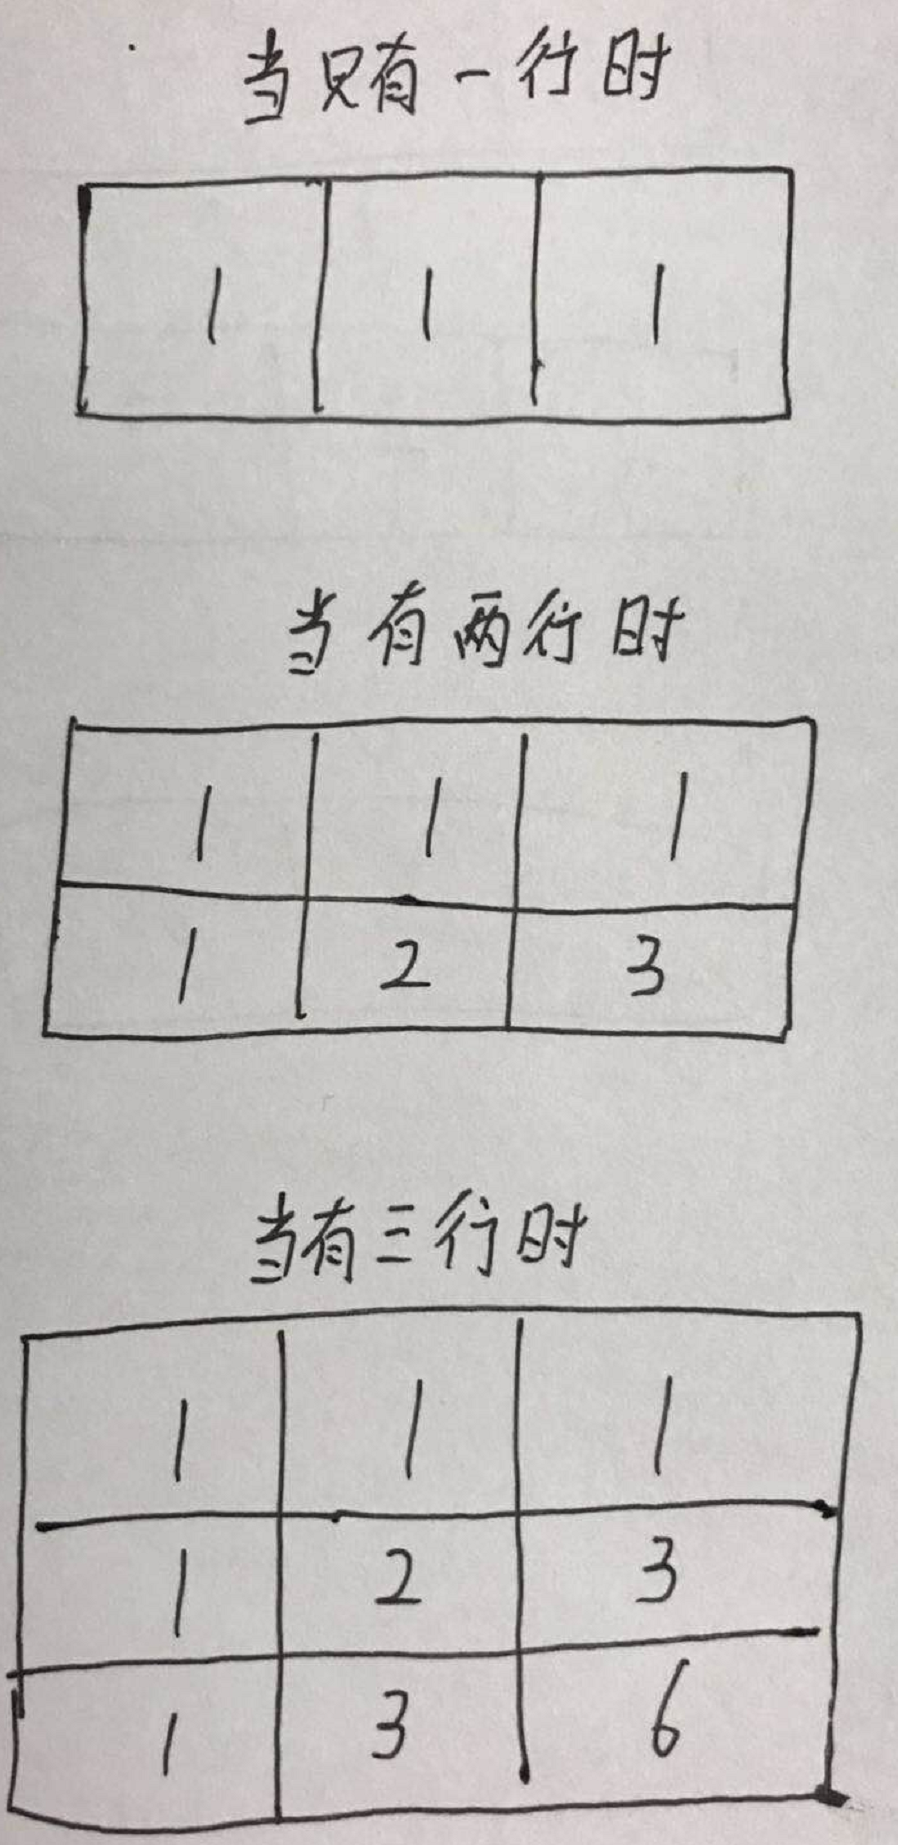 当只有一行时
1 1 1
当有两行时
1 1 1
1 2 3
当有三行时
1 1 1
1 2 3
1 3 6